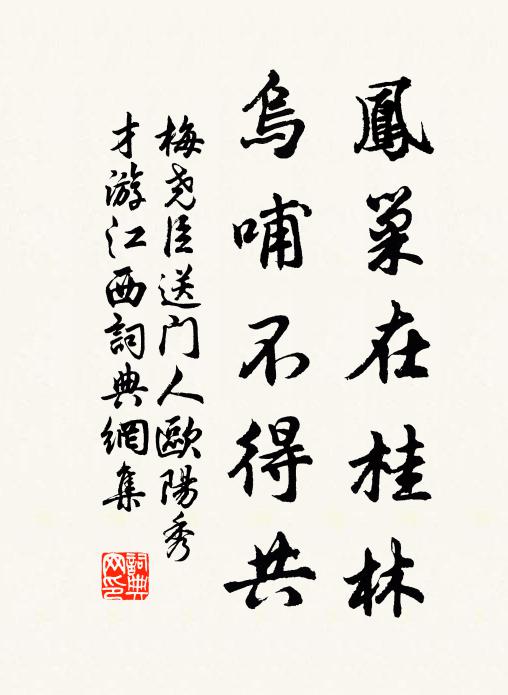 鳳巢在桂林
烏哺不得共
梅尧臣送门人歐陽秀
才游江西詞典網集
詞典
网印